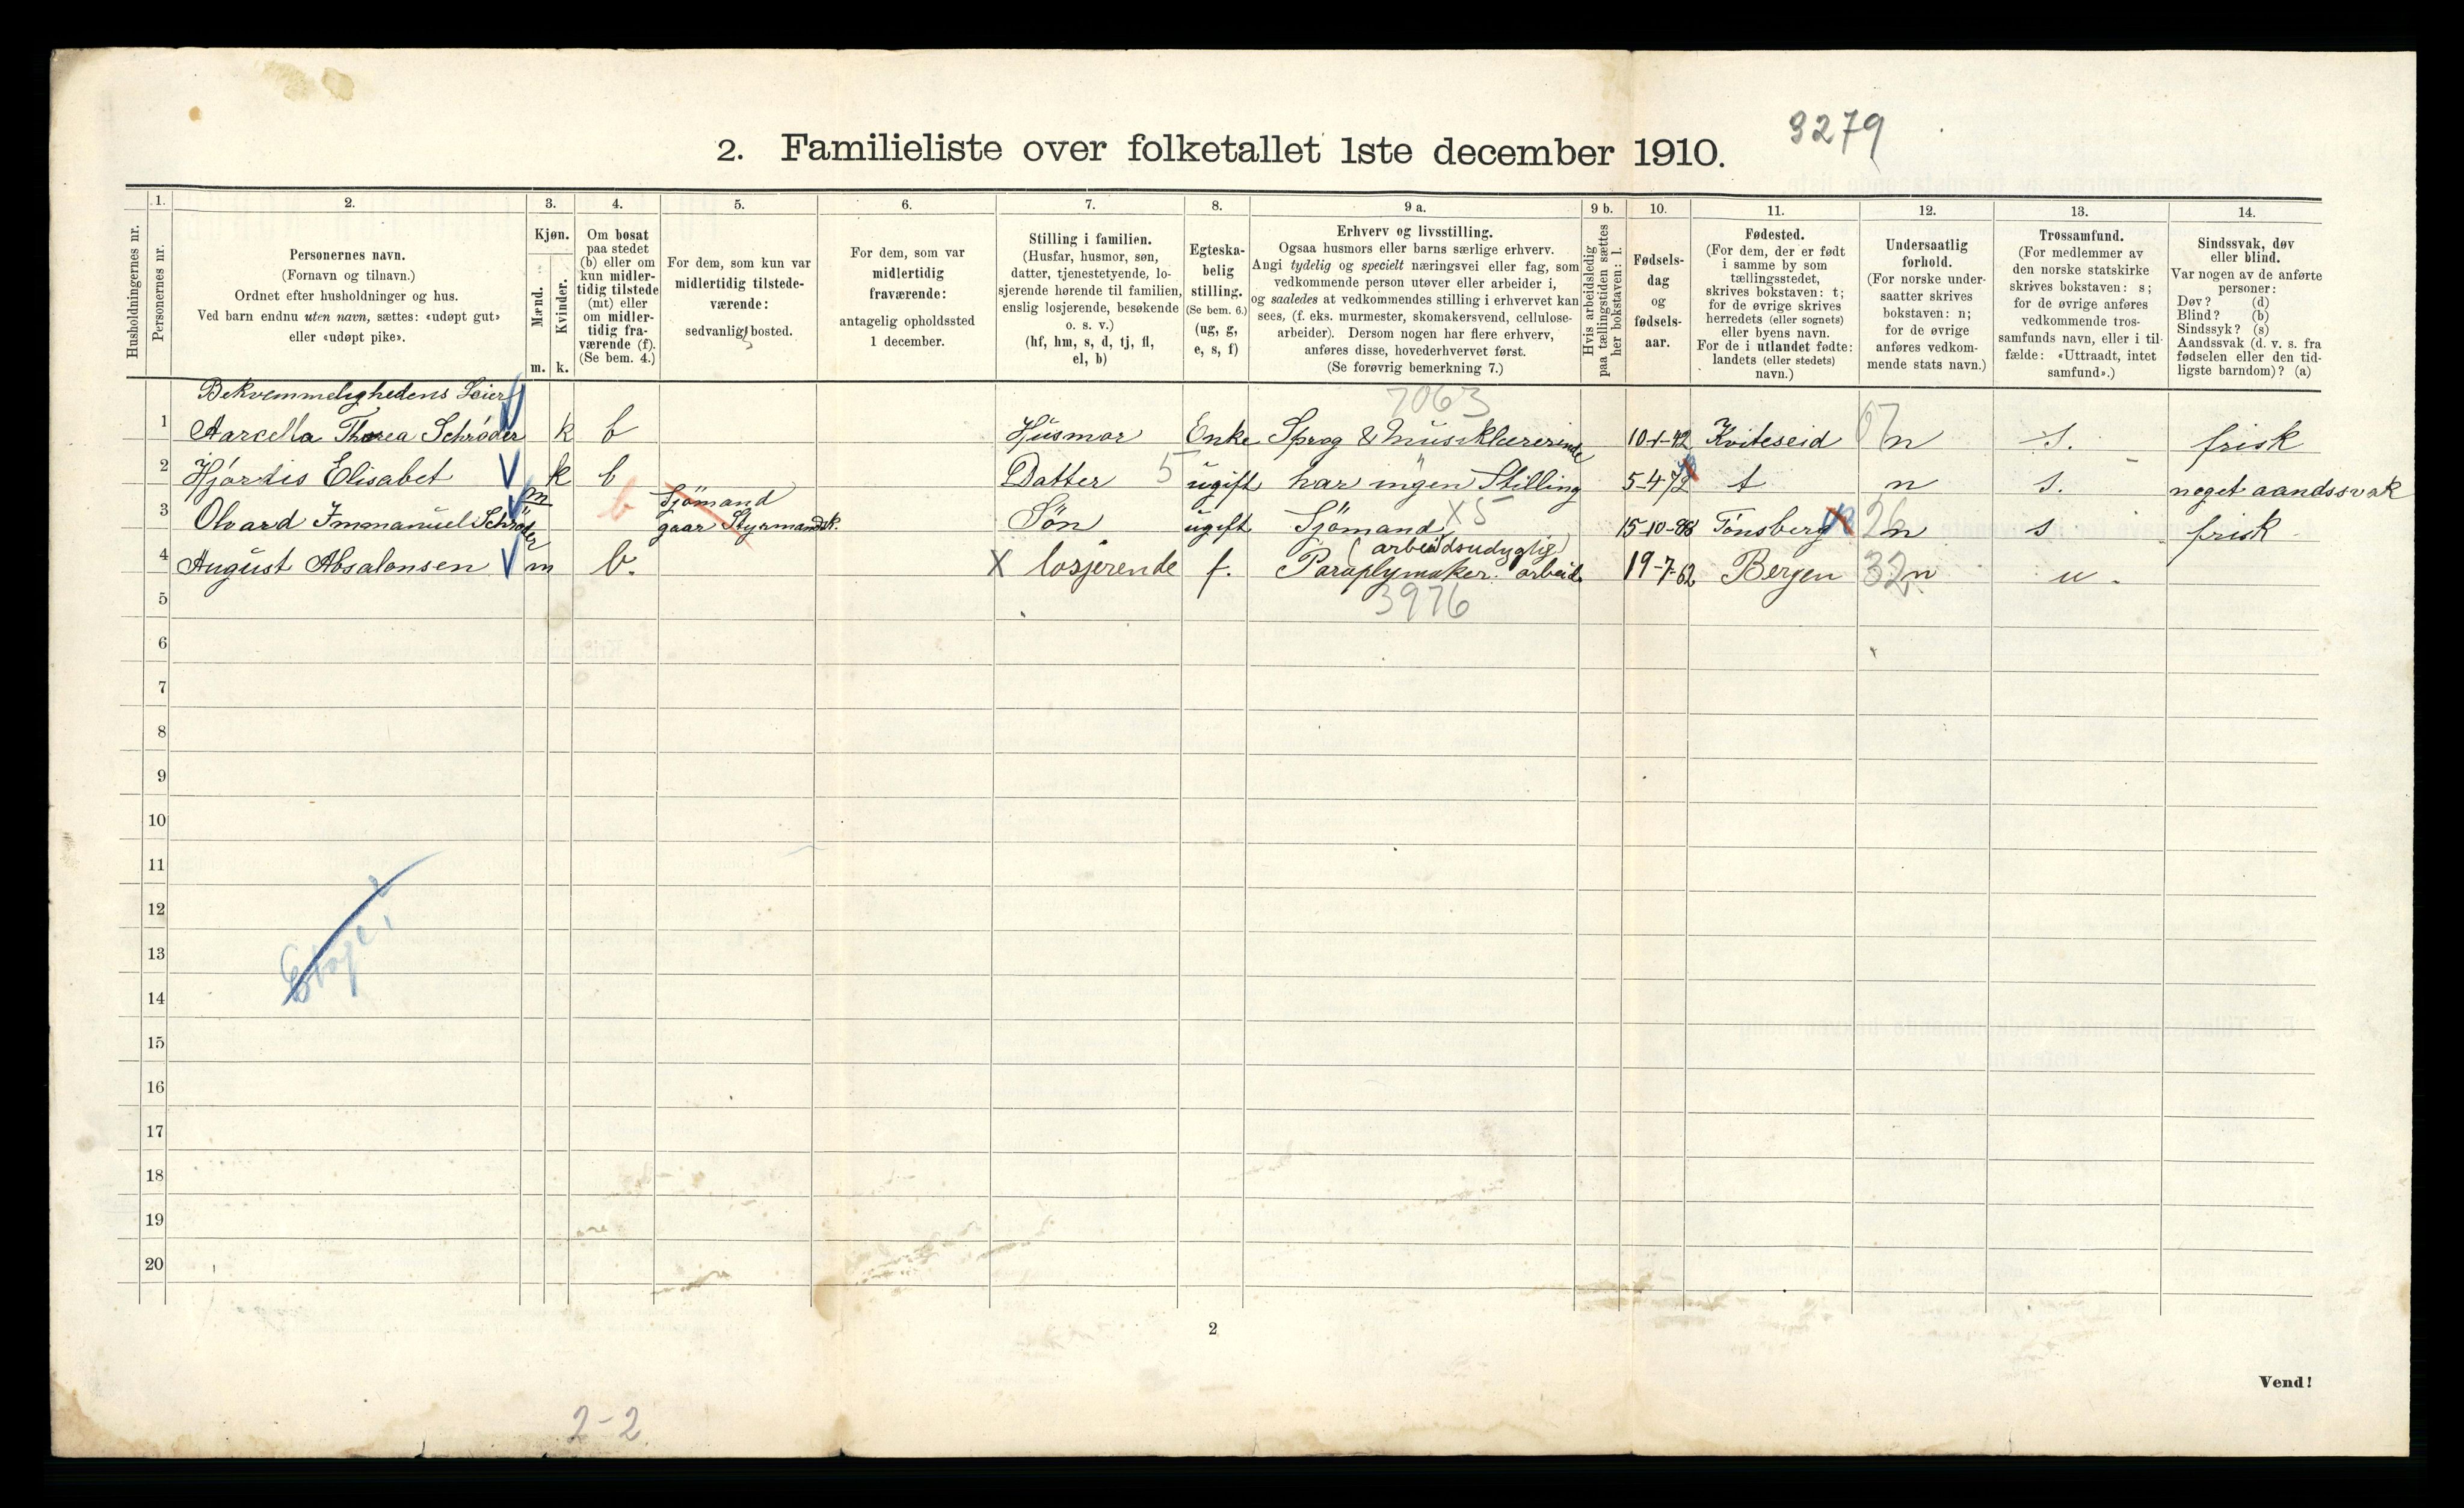 2. Familieliste over folketallet 1ste december 1910.
3279
Husholdningernes nr.
1.
Personernes nr.
2.
Personernes navn.
(Fornavn og tilnavn.)
Ordnet efter husholdninger og hus.
Ved barn endnu uten navn, sættes: «udøpt gut»
eller «udøpt pike».
3.
Kjøn.
Mænd.
Kvinder.
m.
k.
4.
Om bosat
paa stedet
(b) eller om
kun midler-
tidig tilstede
(mt) eller
om midler-
tidig fra-
værende (f).
(Se bem. 4.)
5.
For dem, som kun var
midlertidig tilstede-
værende:
sedvanlig bosted.
6.
For dem, som var
midlertidig
fraværende:
antagelig opholdssted
1 december.
7.
Stilling i familien.
(Husfar, husmor, søn,
datter, tjenestetyende, lo-
sjerende hørende til familien,
enslig losjerende, besøkende
o. s. v.)
(hf, hm, s, d, tj, fl,
el, b)
8.
Egteska-
belig
stilling.
(Se bem. 6.)
(ug, g,
e, s, f)
9 a.
Erhverv og livsstilling.
Ogsaa husmors eller barns særlige erhverv.
Angi tydelig og specielt næringsvei eller fag, som
vedkommende person utøver eller arbeider i,
og saaledes at vedkommendes stilling i erhvervet kan
sees, (f. eks. murmester, skomakersvend, cellulose-
arbeider). Dersom nogen har flere erhverv,
anføres disse, hovederhvervet først.
(Se forøvrig bemerkning 7.)
9 b.
Hvis arbeidsledig
paa tællingstiden sættes
her bokstaven: l.
10.
Fødsels-
dag
og
fødsels-
aar.
11.
Fødested.
(For dem, der er født
i samme by som
tællingsstedet,
skrives bokstaven: t;
for de øvrige skrives
herredets (eller sognets)
eller byens navn.
For de i utlandet fødte:
landets (eller stedets)
navn.)
12.
Undersaatlig
forhold.
(For norske under-
saatter skrives
bokstaven: n;
for de øvrige
anføres vedkom-
mende stats navn.)
13.
Trossamfund.
(For medlemmer av
den norske statskirke
skrives bokstaven: s;
for de øvrige anføres
vedkommende tros-
samfunds navn, eller i til-
fælde: «Uttraadt, intet
samfund».)
14.
Sindssvak, døv
eller blind.
Var nogen av de anførte
personer:
Døv? (d)
Blind? (b)
Sindssyk? (s)
Aandssvak (d. v. s. fra
fødselen eller den tid-
ligste barndom)? (a)
Bekvemmelighedens Leier
7063
1 Marcella Thorea Schrøder k b Husmor Enke Sprog & Musiklærerinde 10-1-42 Kviteseid 07 n s. frisk
2 Hjørdis Elisabet k b Datter 5 ugift har ingen Stilling 5-4-72 t n s. noget aandssvak
3 Olvard Immanuel Schrøder m b Sjömand
gaar Styrmandsk. Sön ugift Sjömand X5 15-10-88 Tönsberg 26 n s frisk
(arbeidsudyglig)
4 August Absalonsen m b. X losjerende f. Paraplymaker. arbeid. 19-7-62 Bergen 32 n u.
3976
5
6
7
8
9
10
11
12
13
14
15
16
17
18
19
20
2
Vend!
2-2